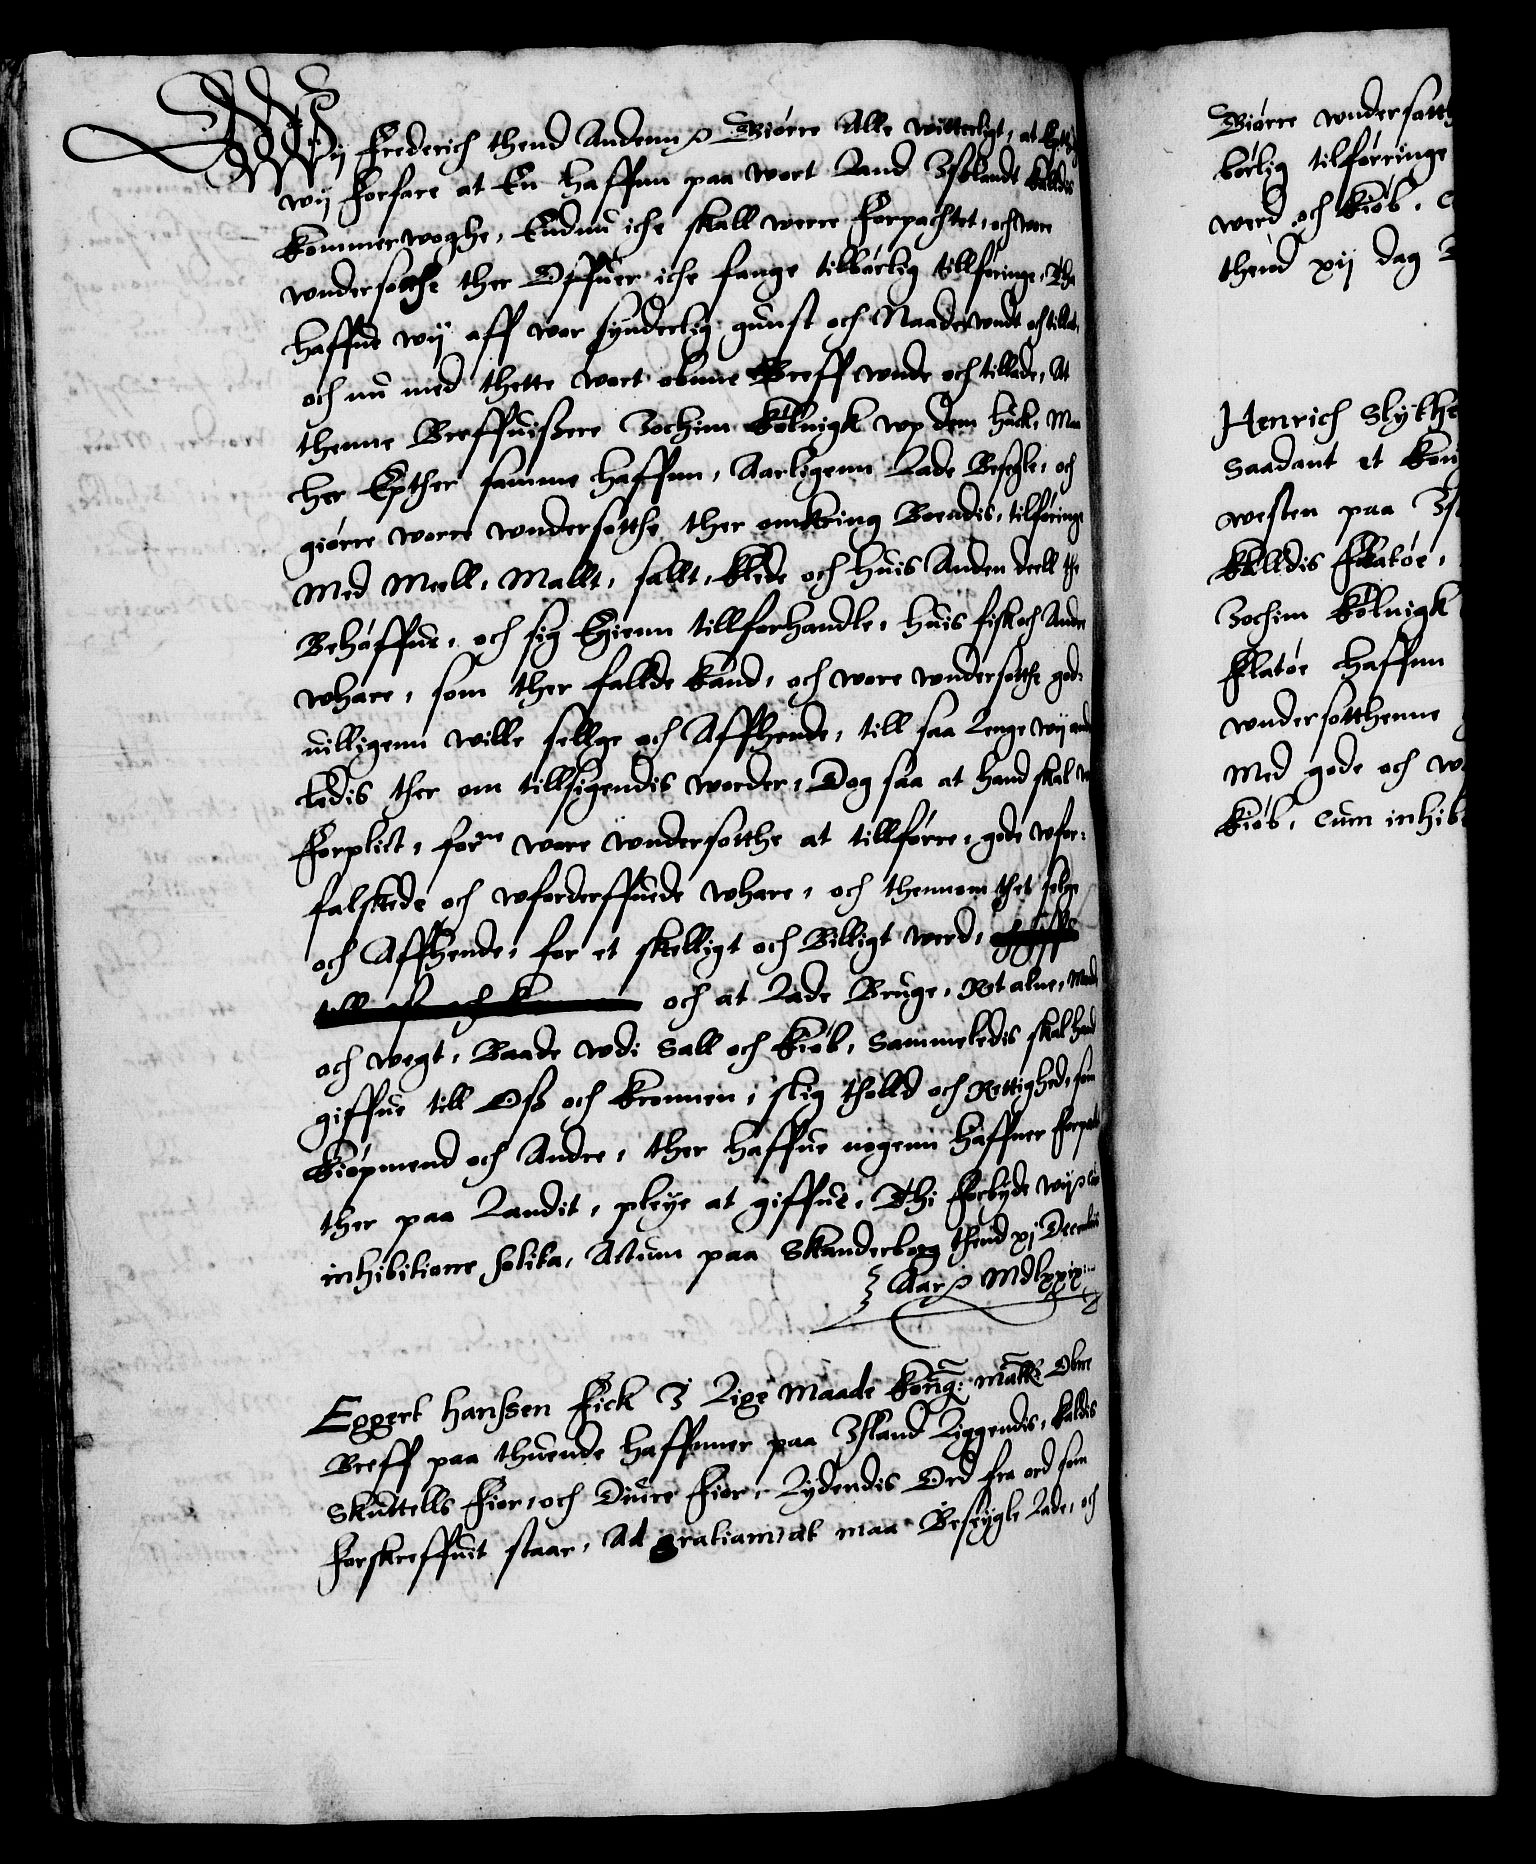 Wij Frederich thend Andenn p Giørre Alle witterligt, at Epttj
wij forfare at En haffnn paa wort Land Isslandt kalldis
kommerwoghe, Endnu iche skall werre forpachtet, och wore
wndersotthe ther Offuer iche fange tilbørlig tillføringe, Tha
haffue wij aff wor synderlig gunst och Naade wndt och tilladt,
och nu med thette wort obnne Breff wnde och tillade, At
thenne Breffuißere Jochim Kølnigk wp dem huck, Maa
her Epther samme haffnn, Aarligenn Lade Besegle, och
giørre worre wndersotthe ther omkring Boendis, tilføringe
Med Meell, Mallt, sallt, klede och huis Anden deell the
Behøffue, och sig Egienn tillforhandle, huis fisk och Andre
whare, som ther falde kand, och wore wndersotthe god-
uilligenn wille sellge och Affhende, till saa Lenge wij and
ledis ther om tillsigendis worder, Dog saa at hand skal w
forplict, forne wore wndersotthe at tillførre, gode wfor-
falskede och wforderffuede whare, och thennom thet selge
och Affhende, for et skelligt och Billigt werd,
och at Lade Bruge, Ret alne, Maade
och wegt, Baade wdi Sall och kiøb, Sammeledis skal hand
giffue till Oss och kronnen, slig tholld och Rettighed, som
kiøpmend och Andre, ther haffue nogenn haffner forpact
ther paa Landit, pleye at giffue, Thi forbyde wij p cū
inhibitione solita, Actum paa Skanderborg thend xj Decembris
Aar p Mdlxxix
Eggert hanssen fick I Lige Maade kong: matts Obne
Breff paa thuende haffnner paa Island Liggendis, kaldis
Skuttells fior, och Diure fior, Lydendis Ord fra ord som
forskreffuit staar, Ad gratiam, at maa Beseygle Lade, och
Giørre wndersotth
børlig tilførringe
werd och kiøb, C
thend xij dag D
Henrich Slykke
Saadant et kon
westen paa Isl
kalldis Flatøe,
Jochim Kølnigk
Flatøe haffnn
wndersotthenne
Med gode och w
kiøb, Cum inhib